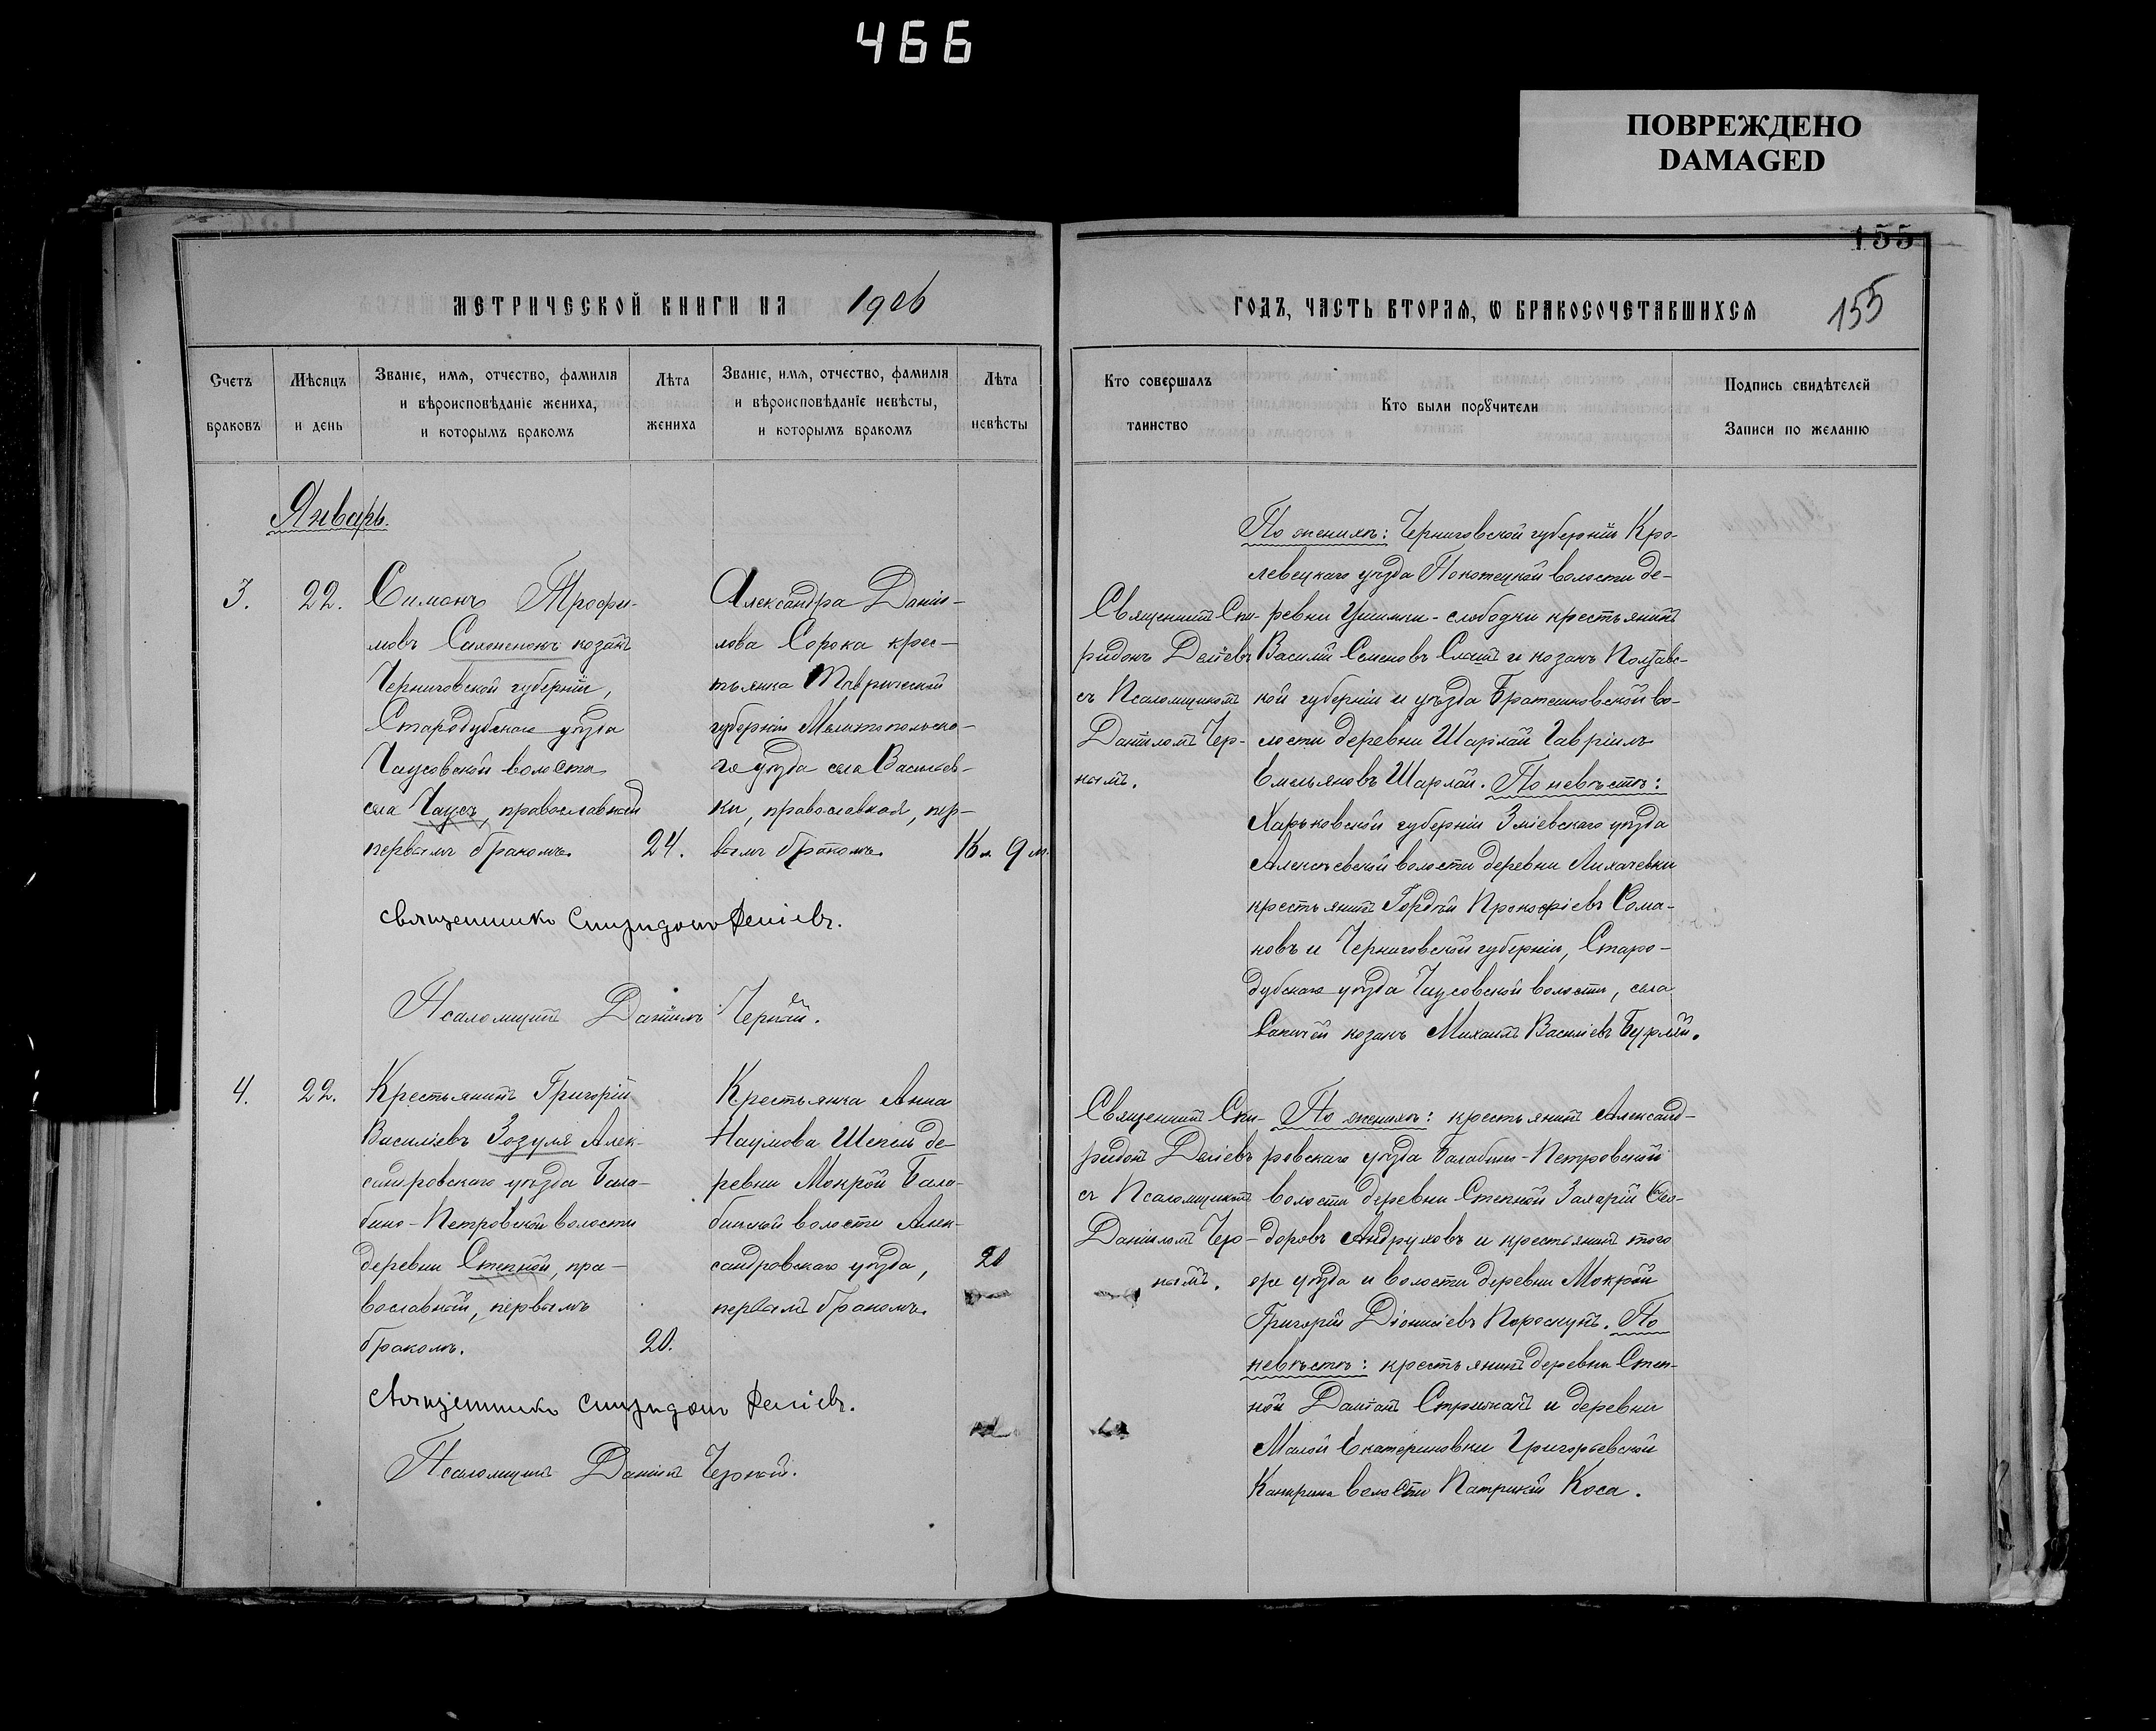 466
ПОВРЕЖДЕНО
DAMAGED
155
МЕТРИЧЕСКОЙ КНИГИ НА 1906
ГОДЪ, ЧАСТЬ ВТОРАЯ, Ѡ БРАКОСОЧЕТАВШИХСЯ
155
Счетъ браковъ
Мѣсяцъ и день
Званіе, имя, отчество, фамилія и вѣроисповѣданіе жениха, и которымъ бракомъ
Лѣта жениха
Званіе, имя, отчество, фамилія и вѣроисповѣданіе невѣсты, и которымъ бракомъ
Лѣта невѣсты
Кто совершалъ таинство
Кто были порꙋчители
Подпись свидѣтелей Записи по желанію
Январь.
3.
22.
Симонъ Трофи-
мовъ козакъ
Черниговской губерніи,
Стародубскаго уѣзда
Чаусовской волости
села Чаусъ, православный
первымъ бракомъ.
24.
Александра Даніи-
лова Сорока крес-
тьянка Таврической
губерніи Мелитопольска-
го уѣзда села Васильев-
ки, православная, пер-
вымъ бракомъ.
9 м.
Священникъ Спиридонъ Деліевъ.
Псаломщикъ Даніилъ Черный.
Священникъ Спи-
ридонъ Деліевъ
съ Псаломщикомъ
Даніиломъ Чер-
нымъ.
По женихѣ: Черниговской губерніи Кро-
левецкаго уѣзда волости де-
ревни слободки крестьянинъ
Василій Семеновъ и козакъ Полтавс-
кой губерніи и уѣзда Братешковской во-
лости деревни Шарлай Гавріилъ
Емельяновъ Шарлай. По невѣстѣ:
Харьковской губерніи Зміевскаго уѣзда
Алексѣевской волости деревни Лихачевки
крестьянинъ Гордѣй Прокофіевъ Сома-
новъ и Черниговской губерніи, Старо-
дубскаго уѣзда Чаусовской волости, села
козакъ Михаилъ Василіевъ Бурлай.
4.
22.
Крестьянинъ Григорій
Василіевъ Зозуля Алек-
сандровскаго уѣзда Бала-
бино-Петровской волости
деревни Степной, пра-
вославный, первымъ
бракомъ.
20.
Крестьянка Анна
Наумова де-
ревни Мокрой Бала-
бинской волости Алек-
сандровскаго уѣзда,
первымъ бракомъ.
20
Священникъ Спиридонъ Деліевъ.
Псаломщикъ Даніилъ Черный.
Священникъ Спи-
ридонъ Деліевъ
съ Псаломщикомъ
Даніиломъ Чер-
нымъ.
По женихѣ: крестьянинъ Александ-
ровскаго уѣзда Балабино-Петровской
волости деревни Степной Захарій Ѳео-
доровъ Андруховъ и крестьянинъ того
же уѣзда и волости деревни Мокрой
Григорій Діонисіевъ. По
невѣстѣ: крестьянинъ деревни Степ-
ной и деревни
Малой Екатериновки Григорьевской
волости Патрикій Коса.